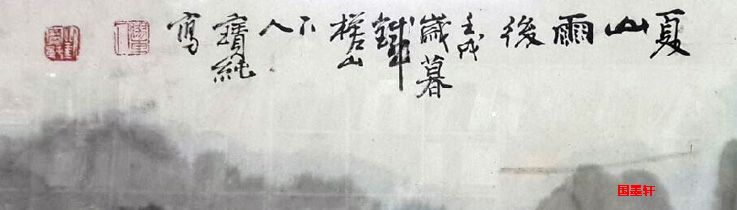 夏
山
雨
後
壬戌
歲暮
鐵
槎山
下
人
寶純
寫
国墨轩